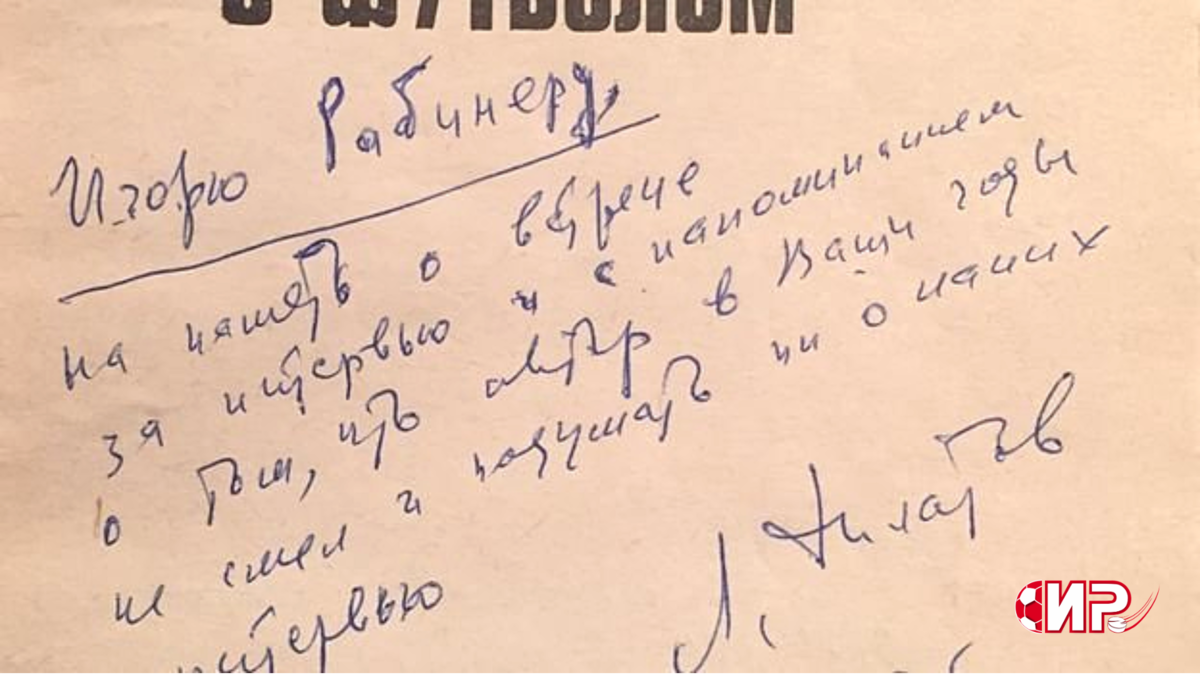 с футболом
Игорю Рабинеру,
на память о встрече
за интервью и с напоминанием
о том, что автор в Ваши годы
не смел и подумать ни о каких
интервью
Л. Филатов
ИР